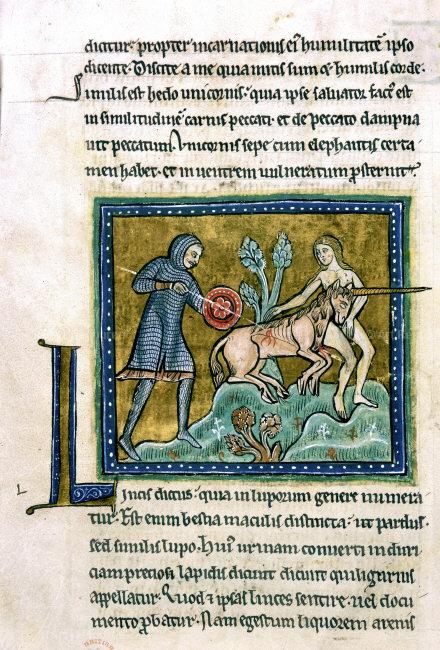 dicitur · propter incarnationis ei᷒ humilitatē ipso
dicente · Discite a me quia mitis sum ⁊ humilis corde ·
Similis est hedo unicornis · quia ipse saluator fact᷒ est
in similitudinē carnis peccati · et de peccato dampna
uit peccatum · Unicornis sepe cum elephantis certa
men habet · et in uentrem uulneratum prosternit ·
Lincis dictus · quia in luporum genere numera
tur · Est enim bestia maculis distincta · ut pardus ·
sed similis lupo · Hui᷒ urinam conuerti in duri
ciam preciosi lapidis dicunt qui ligurius
appellatur · Quod ⁊ ipsas linces sentire · uel docu
mento p̱batur · Nam egestum liquorem arenis